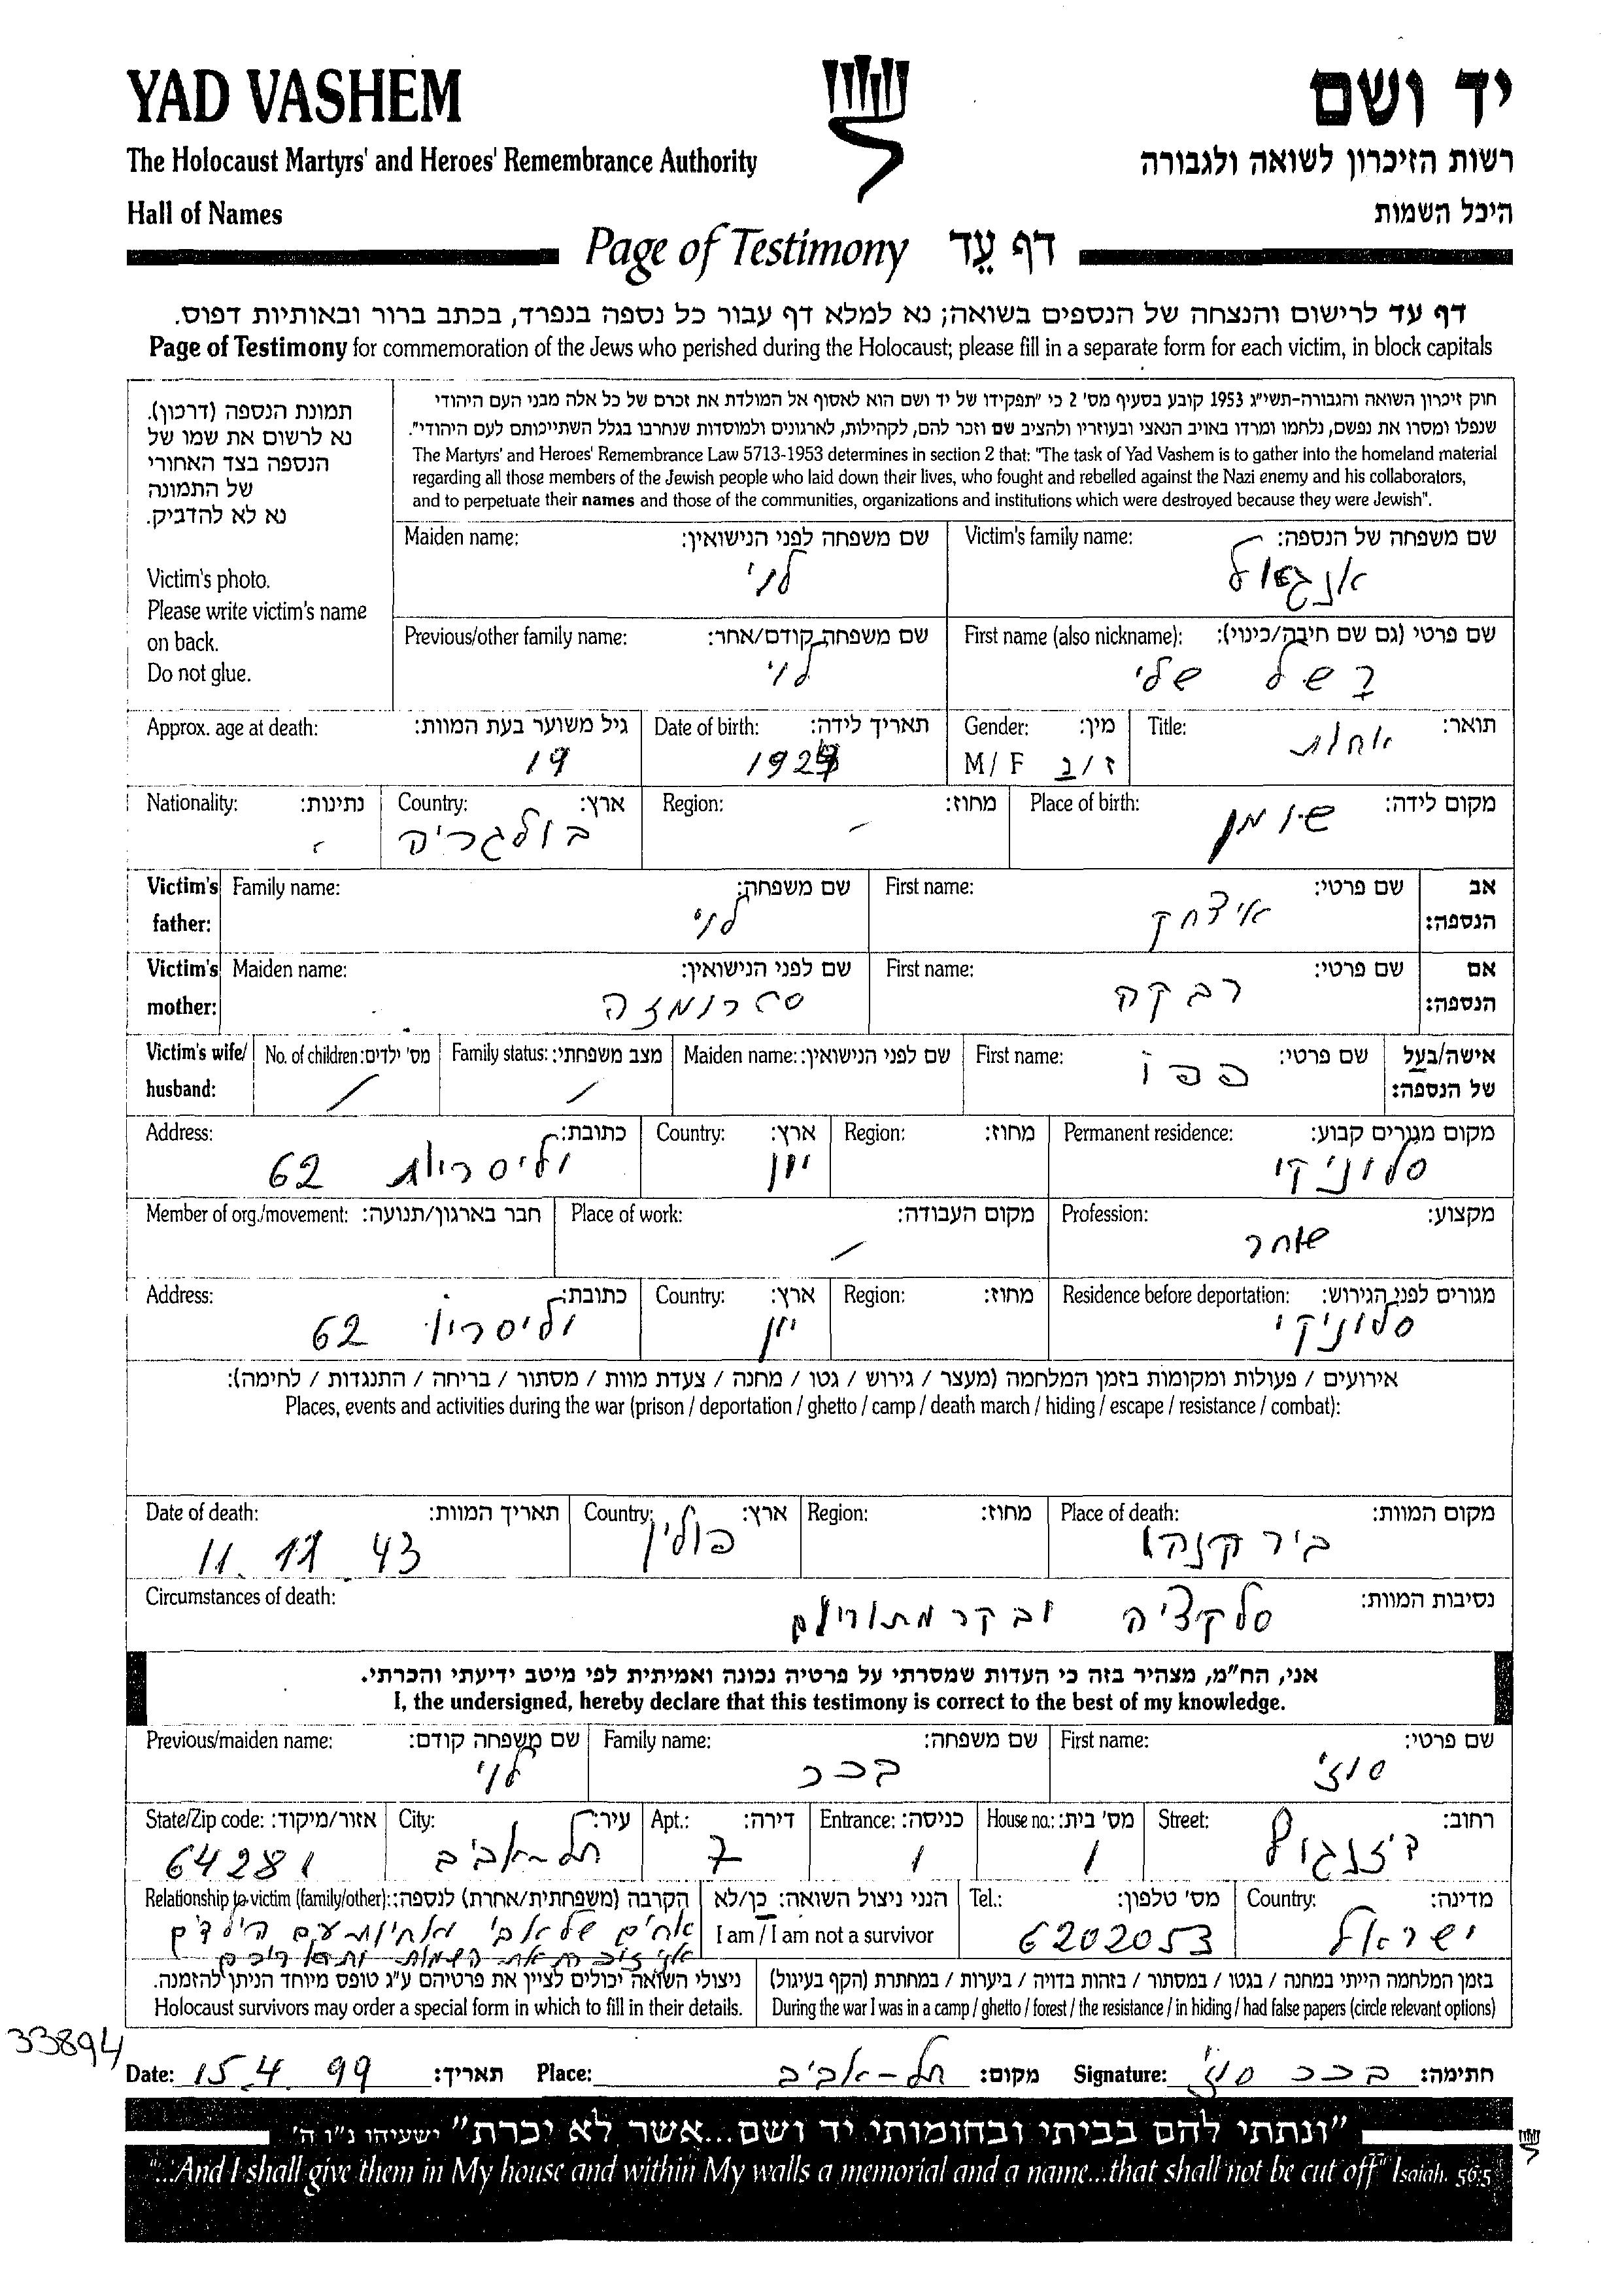 YAD VASHEM
יד ושם
The Holocaust Martyrs' and Heroes' Remembrance Authority
רשות הזיכרון לשואה ולגבורה
Hall of Names
היכל השמות
Page of Testimony דף עֵד
דף עד לרישום והנצחה של הנספים בשואה; נא למלא דף עבור כל נספה בנפרד, בכתב ברור ובאותיות דפוס.
Page of Testimony for commemoration of the Jews who perished during the Holocaust; please fill in a separate form for each victim, in block capitals
תמונת הנספה (דרכון).
נא לרשום את שמו של
הנספה בצד האחורי
של התמונה
נא לא להדביק.
Victim's photo.
Please write victim's name
on back.
Do not glue.
חוק זיכרון השואה והגבורה-תשי"ג 1953 קובע בסעיף מס' 2 כי "תפקידו של יד ושם הוא לאסוף אל המולדת את זכרם של כל אלה מבני העם היהודי
שנפלו ומסרו את נפשם, נלחמו ומרדו באויב הנאצי ובעוזריו ולהציב שם וזכר להם, לקהילות, לארגונים ולמוסדות שנחרבו בגלל השתייכותם לעם היהודי".
The Martyrs' and Heroes' Remembrance Law 5713-1953 determines in section 2 that: "The task of Yad Vashem is to gather into the homeland material
regarding all those members of the Jewish people who laid down their lives, who fought and rebelled against the Nazi enemy and his collaborators,
and to perpetuate their names and those of the communities, organizations and institutions which were destroyed because they were Jewish".
Victim's family name: שם משפחה של הנספה:
אנג'ל
Maiden name: שם משפחה לפני הנישואין:
לוי
First name (also nickname): שם פרטי (גם שם חיבה/כינוי):
רשל שלי
Previous/other family name: שם משפחה קודם/אחר:
לוי
Title: תואר:
אחות
Gender: מין:
M / F ז / נ
Date of birth: תאריך לידה:
1924
Approx. age at death: גיל משוער בעת המוות:
19
Place of birth: מקום לידה:
שומן
Region: מחוז:
Country: ארץ:
בולגריה
Nationality: נתינות:
Victim's father: אב הנספה:
First name: שם פרטי:
איצחק
Family name: שם משפחה:
לוי
Victim's mother: אם הנספה:
First name: שם פרטי:
רבקה
Maiden name: שם לפני הנישואין:
Victim's wife/ husband: אישה/בעל של הנספה:
First name: שם פרטי:
פפו
Maiden name: שם לפני הנישואין:
Family status: מצב משפחתי:
No. of children: מס' ילדים:
Permanent residence: מקום מגורים קבוע:
סלוניקי
Region: מחוז:
Country: ארץ:
יוון
Address: כתובת:
62
Profession: מקצוע:
Place of work: מקום העבודה:
Member of org./movement: חבר בארגון/תנועה:
Residence before deportation: מגורים לפני הגירוש:
סלוניקי
Region: מחוז:
Country: ארץ:
יוון
Address: כתובת:
62
אירועים / פעולות ומקומות בזמן המלחמה (מעצר / גירוש / גטו / מחנה / צעדת מוות / מסתור / בריחה / התנגדות / לחימה):
Places, events and activities during the war (prison / deportation / ghetto / camp / death march / hiding / escape / resistance / combat):
Place of death: מקום המוות:
בירקנהו
Region: מחוז:
Country: ארץ:
פולין
Date of death: תאריך המוות:
11. 11 43
Circumstances of death: נסיבות המוות:
סלקציה
אני, הח"מ, מצהיר בזה כי העדות שמסרתי על פרטיה נכונה ואמיתית לפי מיטב ידיעתי והכרתי.
I, the undersigned, hereby declare that this testimony is correct to the best of my knowledge.
First name: שם פרטי:
סוזי
Family name: שם משפחה:
בכר
Previous/maiden name: שם משפחה קודם:
לוי
Street: רחוב:
דיזנגוף
House no.: מס' בית:
1
Entrance: כניסה:
1
Apt.: דירה:
7
City: עיר:
תל-אביב
State/Zip code: אזור/מיקוד:
64281
Country: מדינה:
ישראל
Tel.: מס' טלפון:
6202053
הנני ניצול השואה: כן/לא
I am / I am not a survivor
Relationship to victim (family/other): הקרבה (משפחתית/אחרת) לנספה:
אחים של אבי ואחיות עם הילדים
בזמן המלחמה הייתי במחנה / בגטו / במסתור / בזהות בדויה / ביערות / במחתרת (הקף בעיגול)
During the war I was in a camp / ghetto / forest / the resistance / in hiding / had false papers (circle relevant options)
ניצולי השואה יכולים לציין את פרטיהם ע"ג טופס מיוחד הניתן להזמנה.
Holocaust survivors may order a special form in which to fill in their details.
33894
Date: 15.4.99 תאריך: Place: תל-אביב מקום: Signature: בכר סוזי חתימה:
"ונתתי להם בביתי ובחומותי יד ושם...אשר לא יכרת" ישעיהו נ"ו ה'
"...And I shall give them in My house and within My walls a memorial and a name...that shall not be cut off" Isaiah, 56:5